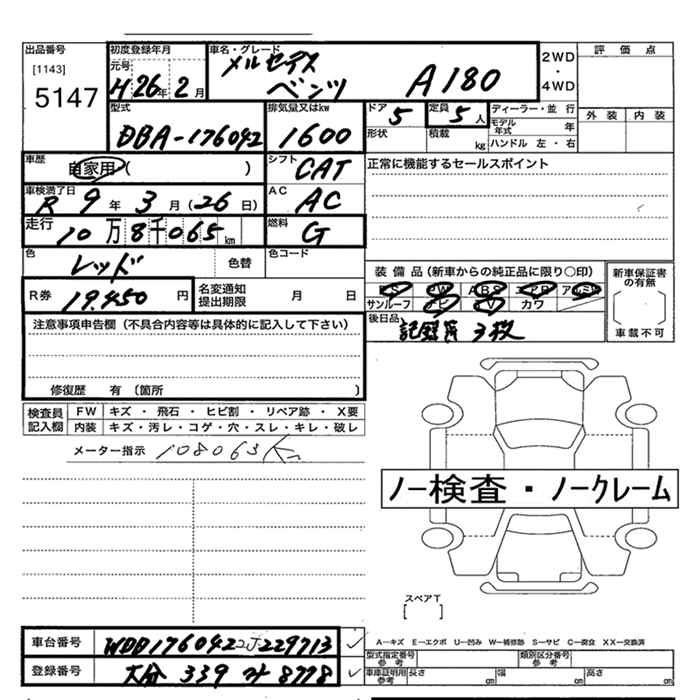 出品番号
[1143]
5147
初度登録年月
元号
H 26年 2月
車名・グレード
メルセデス
ベンツ A180
2WD
・
4WD
評価点
外装 内装
型式
DBA-176042
排気量又はkw
1600
ドア
5
形状
定員
5人
積載
kg
ディーラー・並行
モデル年式 年
ハンドル 左・右
車歴
自家用 ( )
シフト
CAT
正常に機能するセールスポイント
車検満了日
R 9年 3月 (26日)
AC
AC
走行
10万8千065km
燃料
G
色
レッド
色替
色コード
R券
19,450 円
名変通知
提出期限 月 日
装備品 (新車からの純正品に限り〇印)
PS PW ABS エアB アルミW
サンルーフ ナビ TV カワ
後日品
記録簿 3枚
新車保証書
の有無
車載不可
注意事項申告欄 (不具合内容等は具体的に記入して下さい)
修復歴 有 (箇所 )
検査員
記入欄
FW キズ ・ 飛石 ・ ヒビ割 ・ リペア跡 ・ X要
内装 キズ・汚レ・コゲ・穴・スレ・キレ・破レ
メーター指示 108063K
ノー検査・ノークレーム
スペアT
[ ]
車台番号 WDD1760422J229713
登録番号 大分 339 8778
A−キズ E−エクボ U−凹み W−補修跡 S−サビ C−腐食 XX−交換済
型式指定番号
参考
類別区分番号
参考
車庫証明用
参考
長さ cm 幅 cm 高さ cm